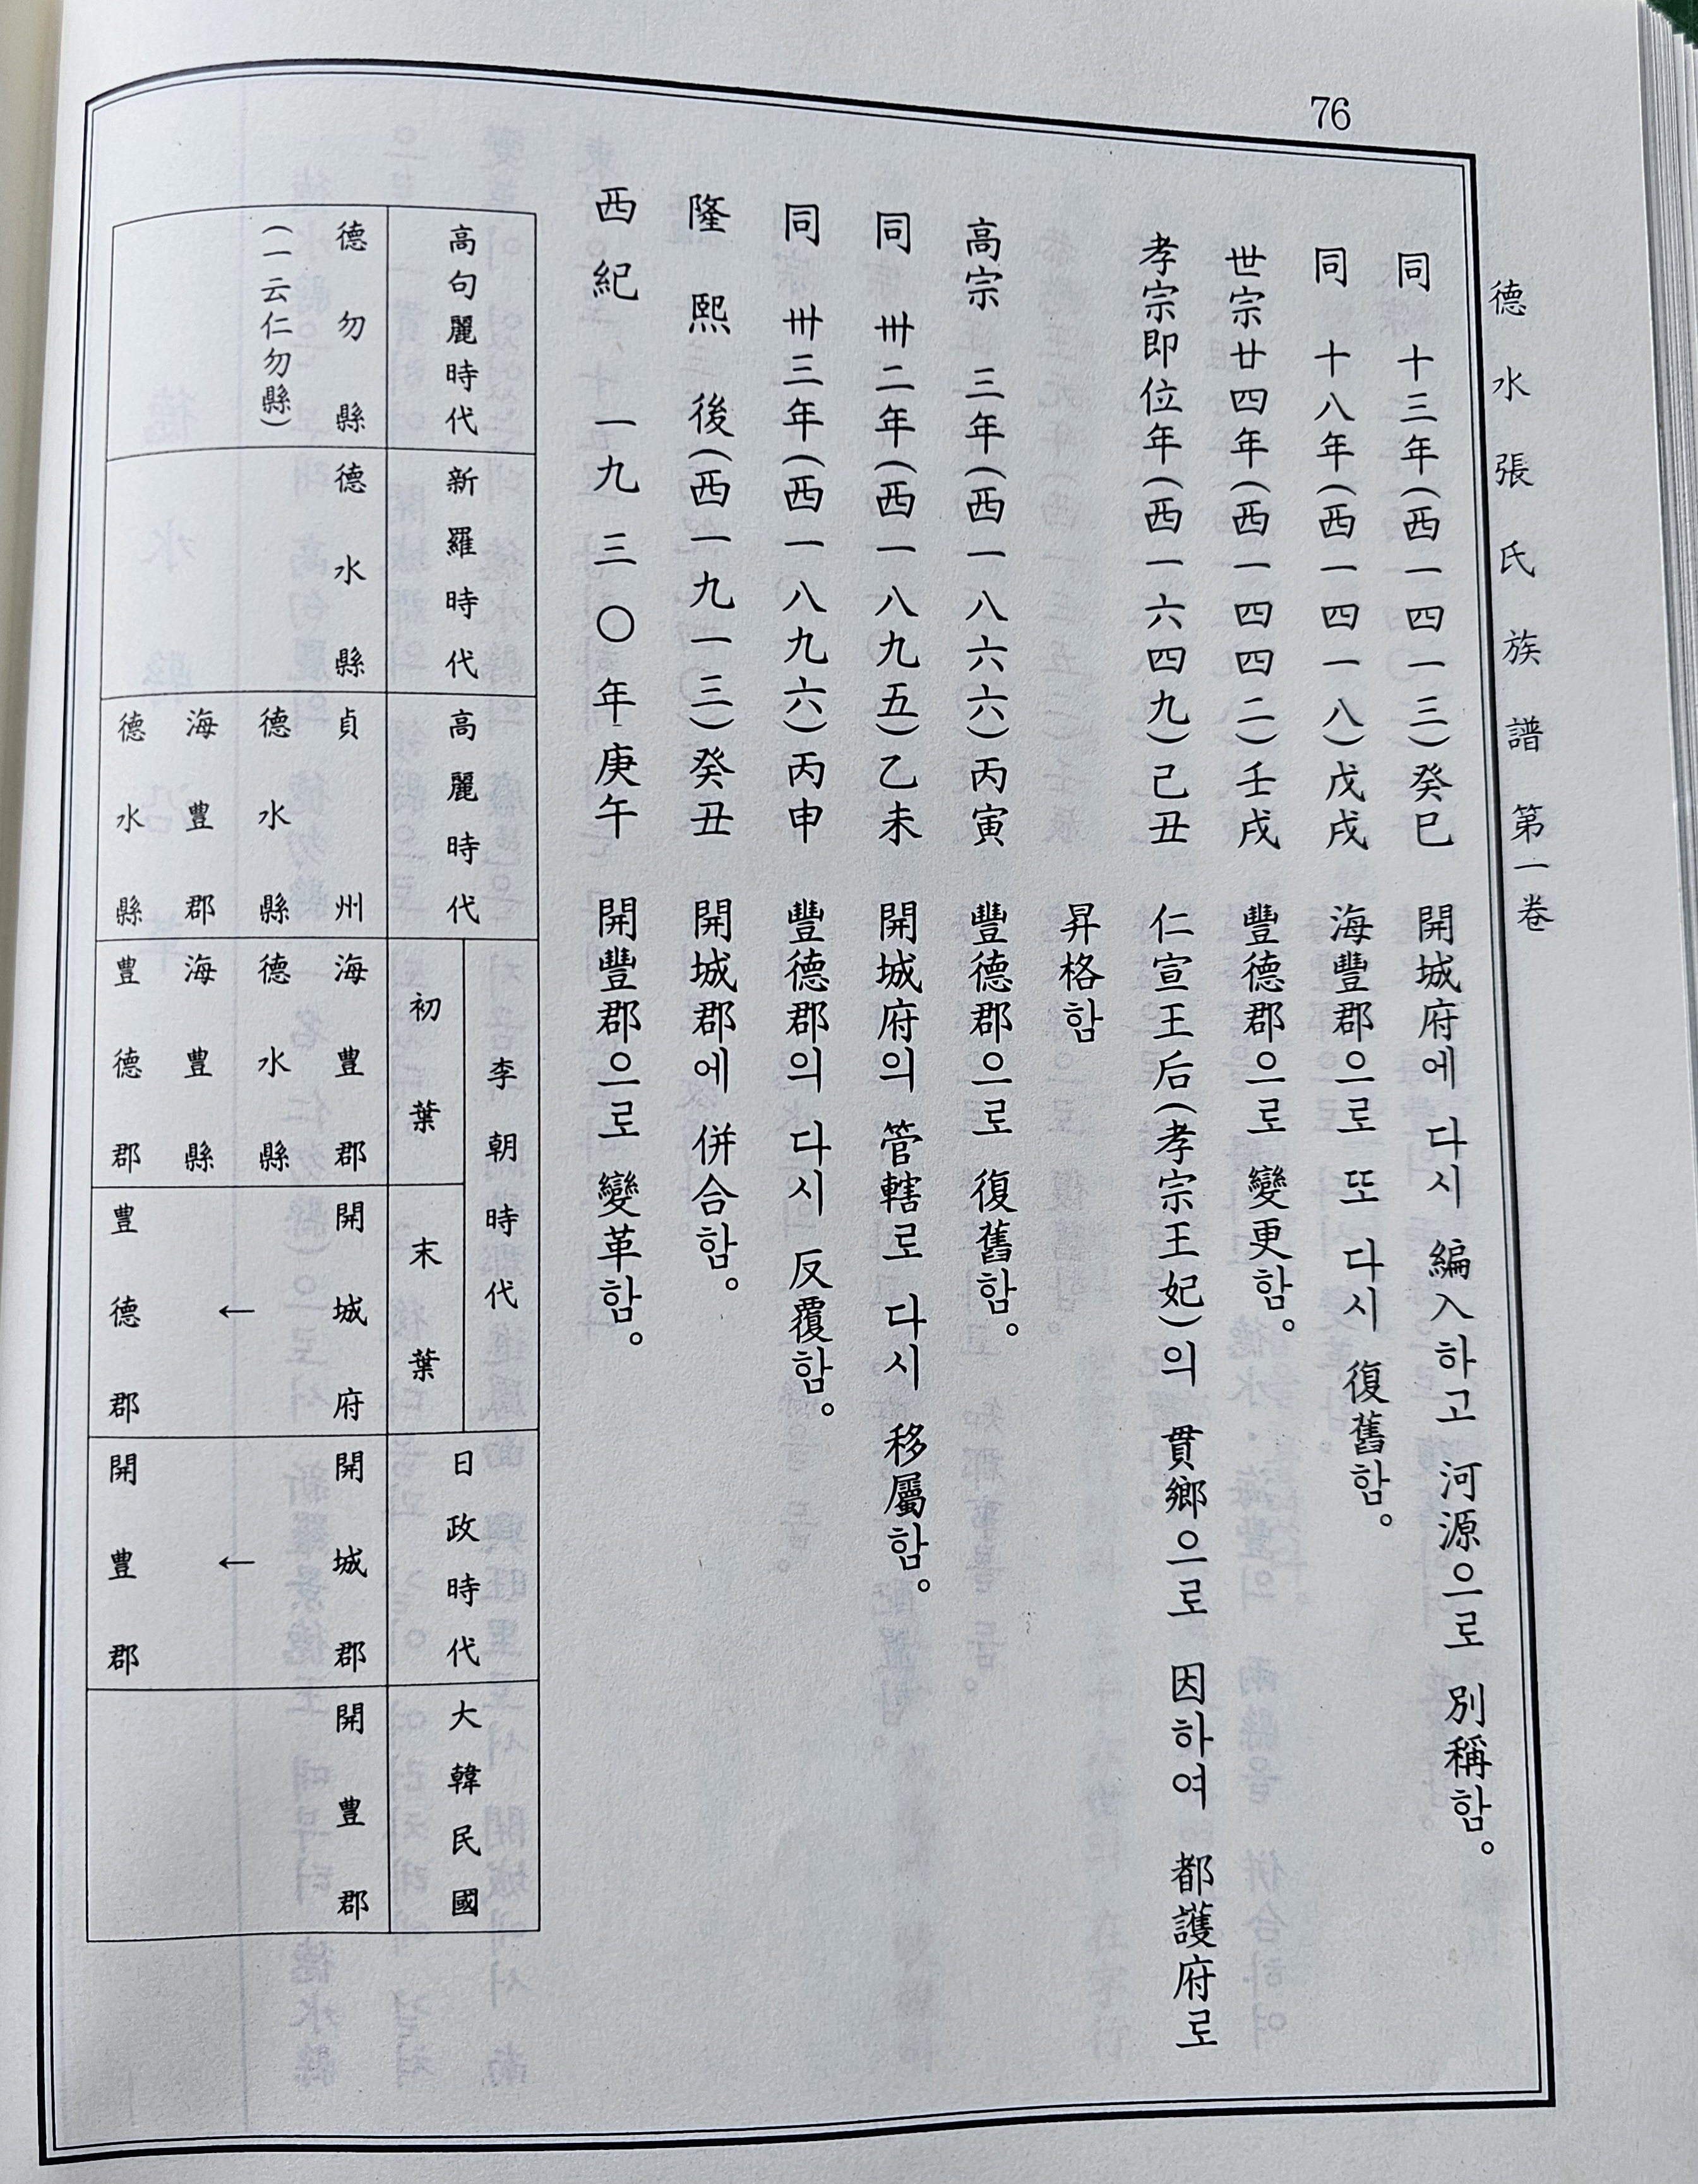 76
德水張氏族譜 第一卷
同 十三年(西一四一三)癸巳 開城府에 다시 編入하고 河源으로 別稱함。
同 十八年(西一四一八)戊戌 海豐郡으로 또 다시 復舊함。
世宗廿四年(西一四四二)壬戌 豐德郡으로 變更함。
孝宗即位年(西一六四九)己丑 仁宣王王后(孝宗王妃)의 貫鄉으로 因하여 都護府로
昇格함
高宗 三年(西一八六六)丙寅 豐德郡으로 復舊함。
同 卅二年(西一八九五)乙未 開城府의 管轄로 다시 移屬함。
同 卅三年(西一八九六)丙申 豐德郡의 다시 反覆함。
隆熙 後(西一九一三)癸丑 開城郡에 併合함。
西紀 一九三〇年庚午 開豐郡으로 變革함。
高句麗時代
新羅時代
高麗時代
李朝時代
初葉
末葉
日政時代
大韓民國
德勿縣
(一云仁勿縣)
德水縣
貞州
德水縣
海豊郡
德水縣
海豊郡
德水縣
海豊縣
豊德郡
開城府
←
豊德郡
開城郡
←
開豊郡
開豊郡